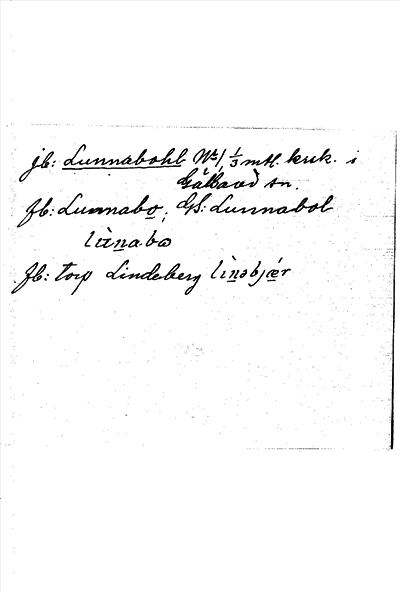 jb: Lunnabohl Nr 1, 1/3 mtl. krsk. i
Gällared sn.
fb: Lunnabo; GS: Lunnabol
lùnabo
fb: torp Lindeberg lìnəbjǽr